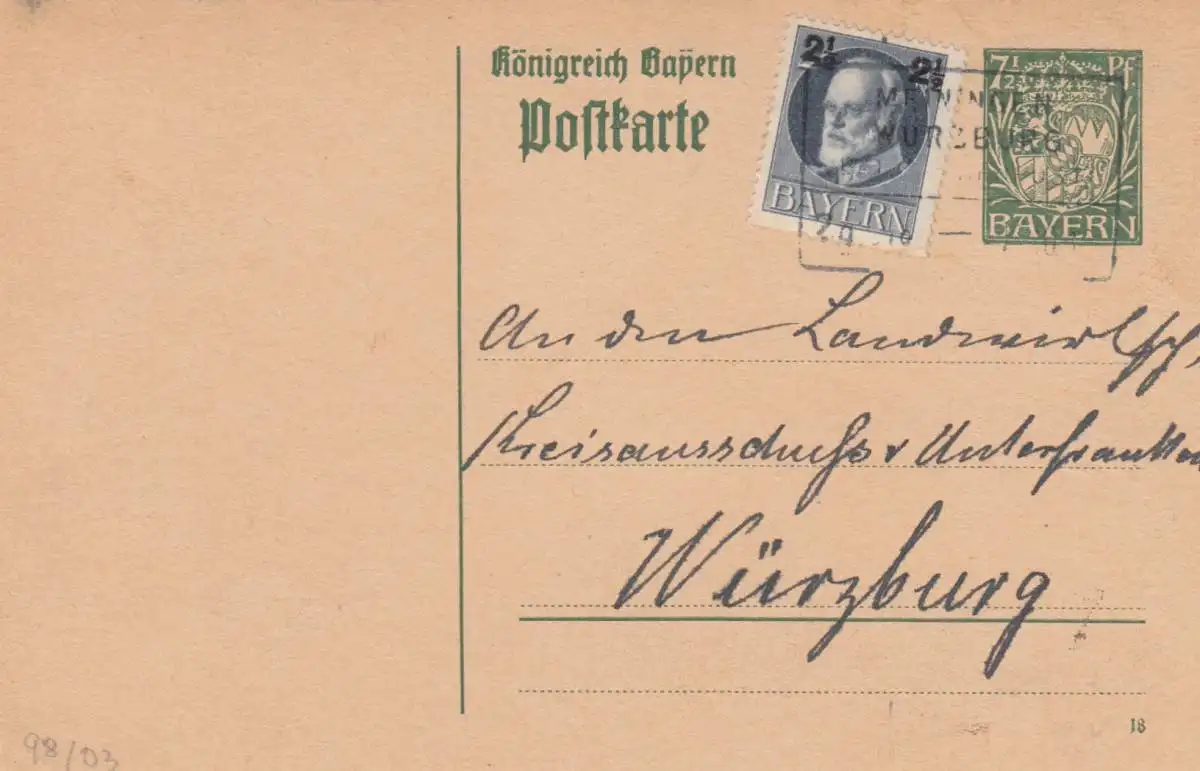 Königreich Bayern
Postkarte
2½ 2½
BAYERN
7½ Pf
BAYERN
MEININGEN
WÜRZBURG
An den Landwirtsch.
Kreisausschuss v Unterfranken
Würzburg
18
98/03